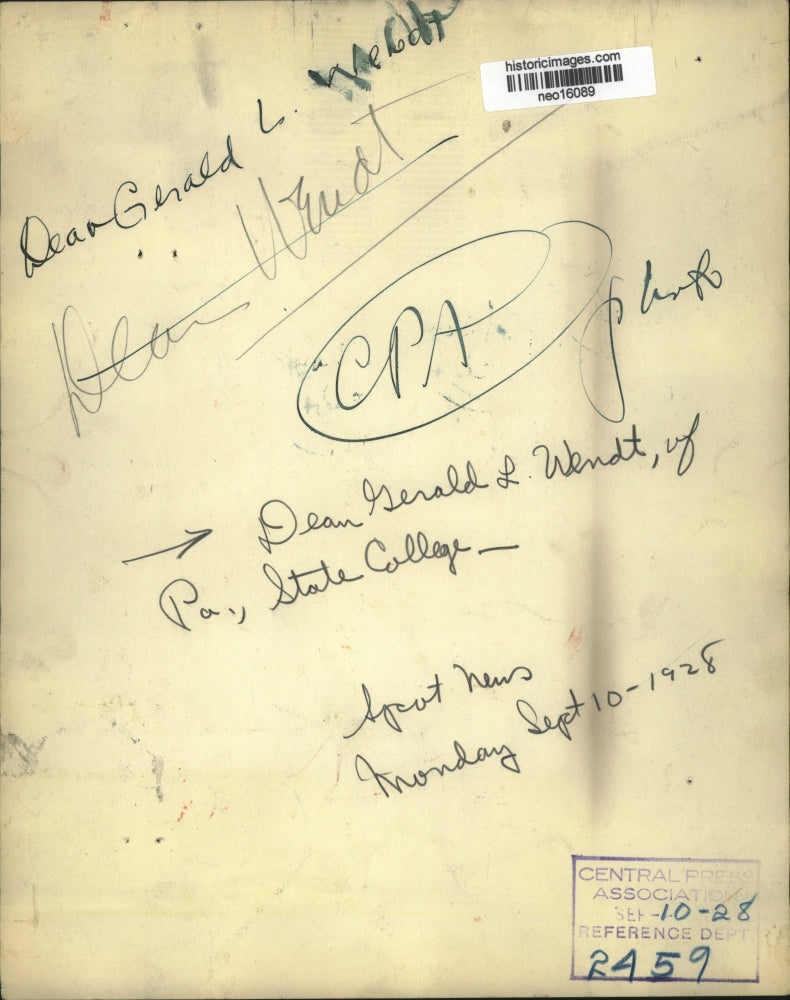 historicimages.com
neo16089
Dean Gerald L. Wendt
Dean Wendt
CPA photo
Dean Gerald L. Wendt, of
Pa., State College —
Spot News
Monday Sept 10-1928
CENTRAL PRESS
ASSOCIATION
SEP -10-28
REFERENCE DEPT
2459